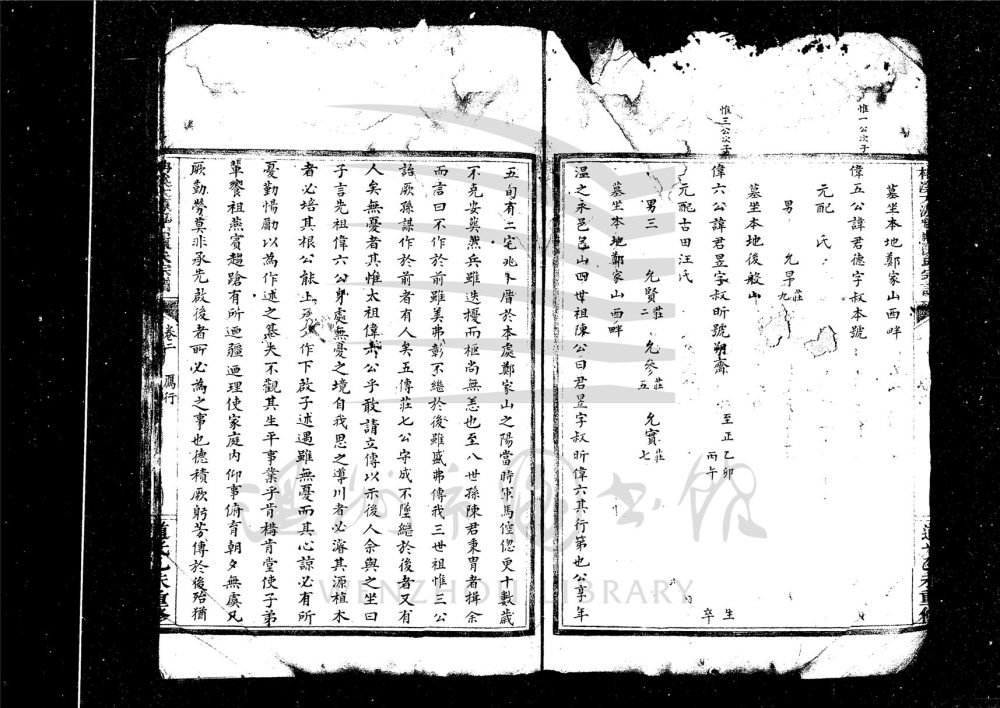 墓坐本地鄭家山西畔
惟一公次子
偉五公諱君德字叔本號
元配 氏
男 允早莊九
墓坐本地後般山
惟三公次子
偉六公諱君昱字叔昕號朔齋 至正乙卯 丙午 生 卒
元配古田汪氏
男三 允賢莊二 允參莊五 允實莊七
墓坐本地鄭家山西畔
溫之永邑 山四世祖陳公曰君昱字叔昕偉六其行第也公享年
五旬有二宅兆卜厝於本處鄭家山之陽當時軍馬倥偬更十數歲
不克安葬然兵雖迭擾而柩尚無恙也至八世孫陳君秉冑者揖余
而言曰不作於前雖美弗彰不繼於後雖盛弗傳我三世祖惟三公
詒厥孫謀作於前者有人矣五傳莊七公守成不墜繼於後者又有
人矣無憂者其惟太祖偉六公乎敢請立傳以示後人余與之坐曰
子言先祖偉六公身處無憂之境自我思之導川者必濬其源植木
者必培其根公能上 作下啟子述遇雖無憂而其心諒必有所
憂勤惕勵以為作述之基夫不觀其生平事業乎肯構肯堂使子弟
輩饗祖燕賓趨蹌有所迺疆迺理使家庭內仰事俯育朝夕無虞凡
厥勤勞莫非承先啟後者所必為之事也德積厥躬芳傳於後殆猶
卷二 鴈行
道光乙未重修
WENZHOU LIBRARY